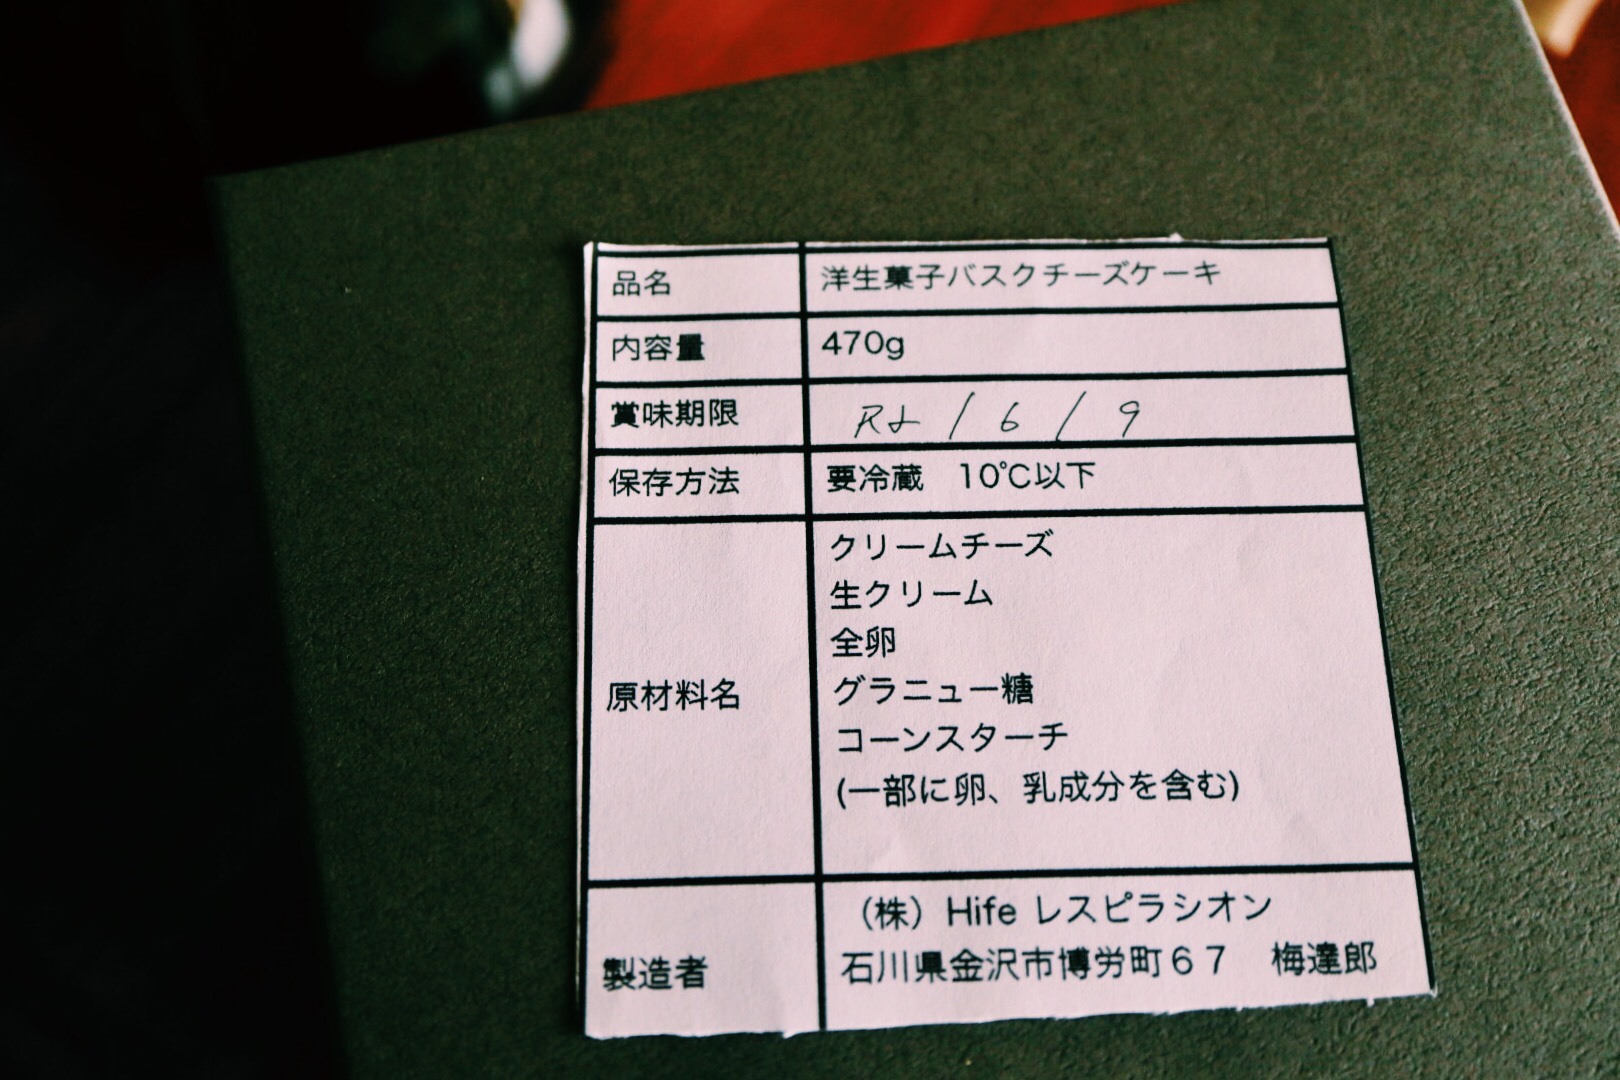 品名 洋生菓子バスクチーズケーキ
内容量 470g
賞味期限 R2 / 6 / 9
保存方法 要冷蔵　10℃以下
原材料名 クリームチーズ
生クリーム
全卵
グラニュー糖
コーンスターチ
(一部に卵、乳成分を含む)
製造者 （株）Hife レスピラシオン
石川県金沢市博労町６７　梅達郎